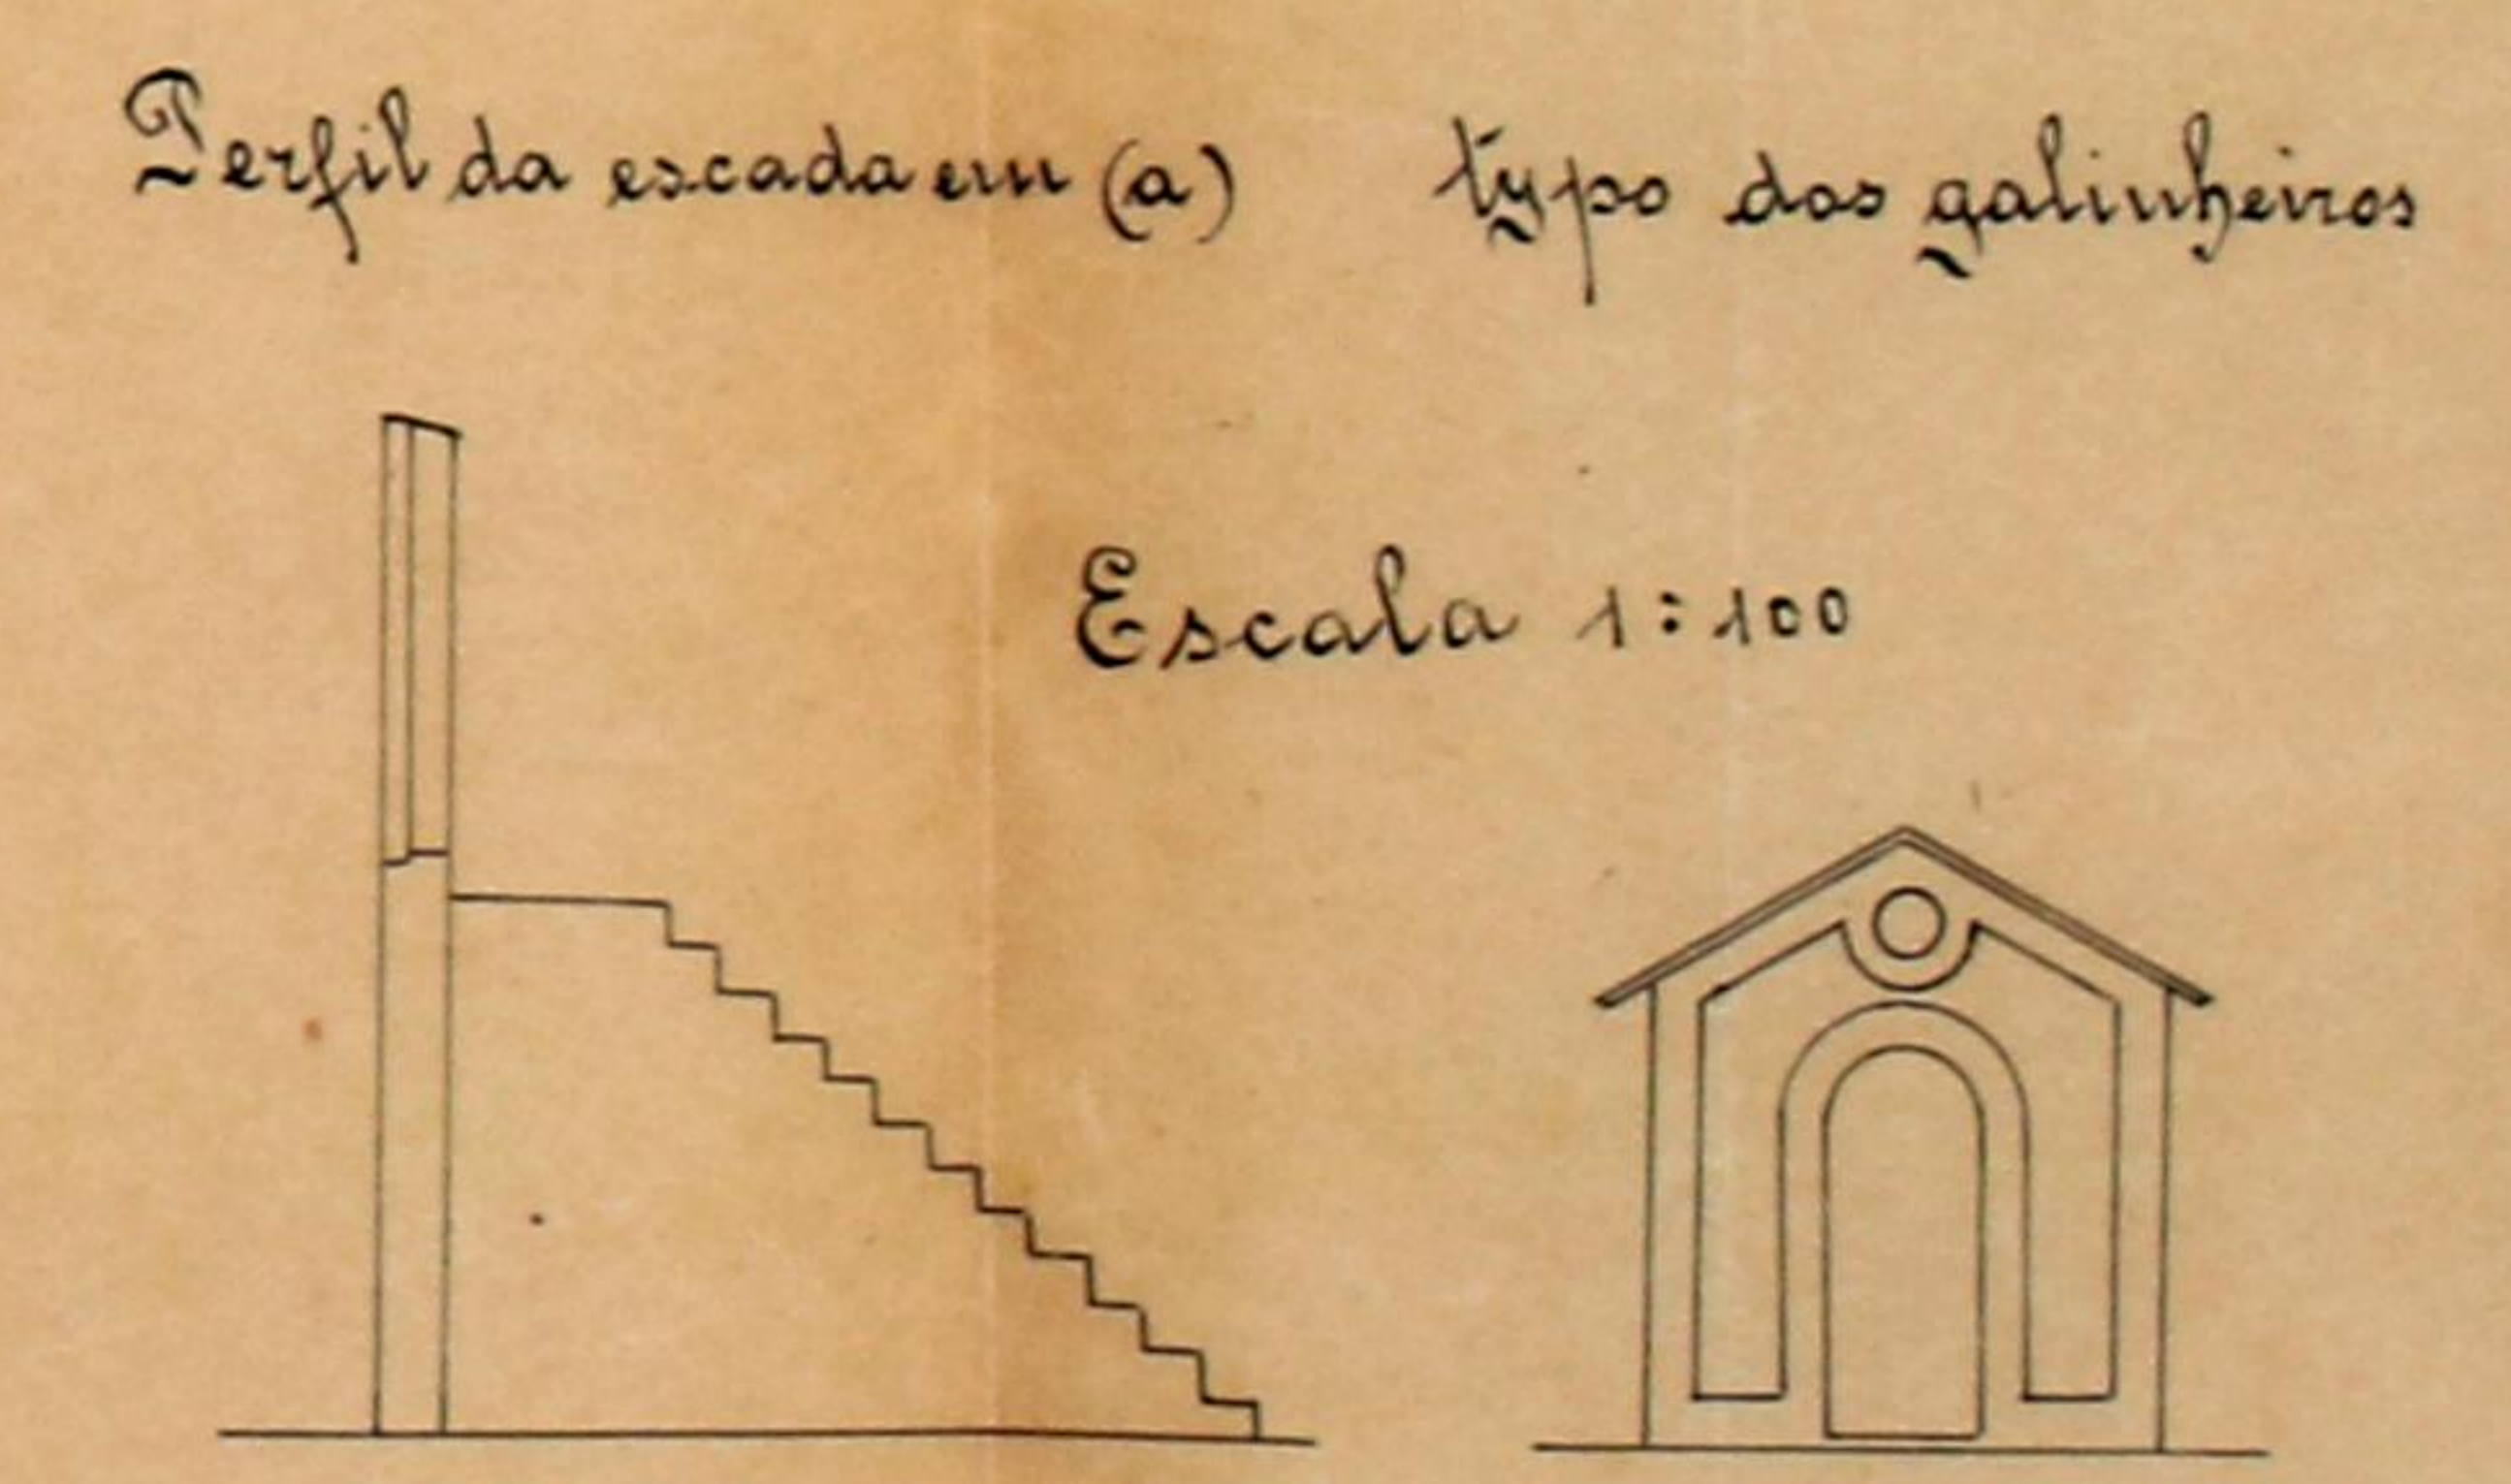 Perfil da escada em (a)
typo dos galinheiros
Escala 1:100